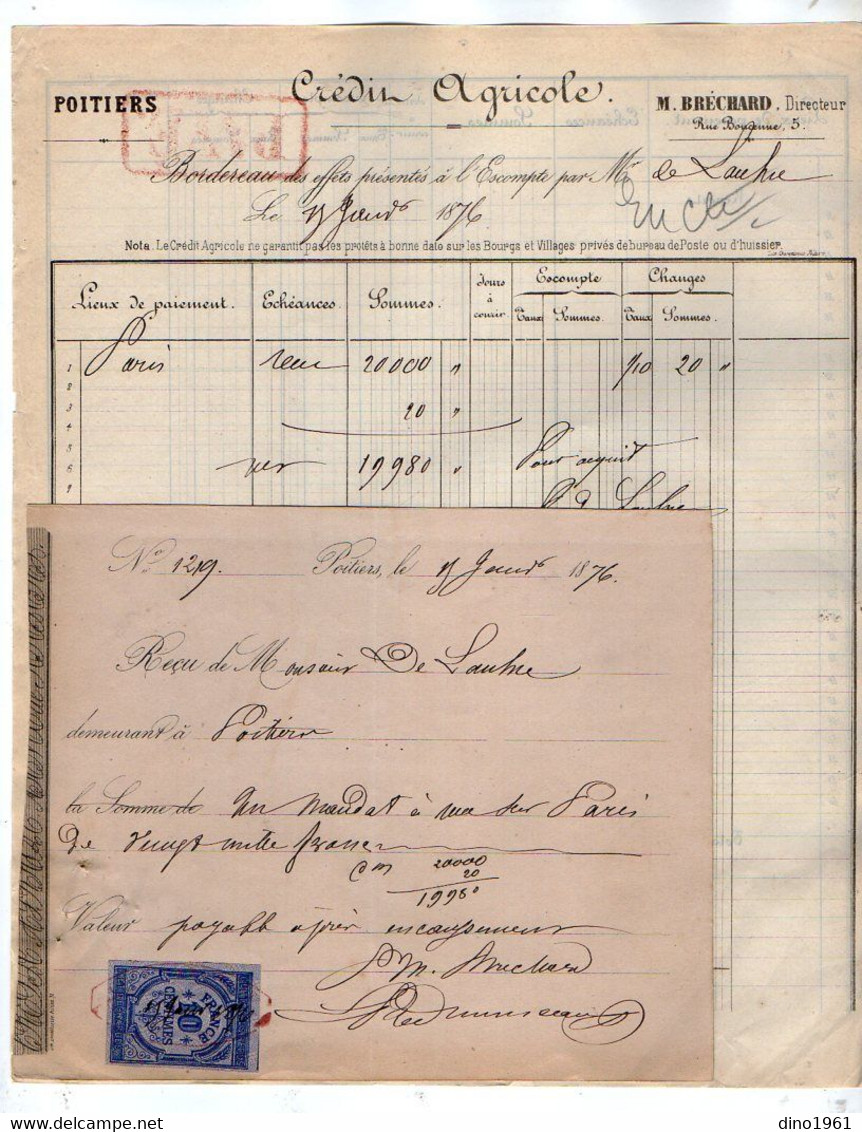 POITIERS
Crédit Agricole.
M. BRÉCHARD, Directeur
Rue Bourgeoise, 5.
PAYÉ
Bordereau des effets présentés à l'Escompte par Mr de Lauhre
Le 17 Janvr 1876
Nota. Le Crédit Agricole ne garantit pas les protêts à bonne date sur les Bourgs et Villages privés de bureau de Poste ou d'huissier.
Lieux de paiement. Echéances. Sommes. Jours à courir. Escompte Taux Sommes. Changes Taux Sommes.
1 Paris vue 20000 " 1/10 20 "
2
3 20 "
4
5
6 net 19980 " Pour acquit
7
No 1219. Poitiers, le 17 Janvr 1876.
Reçu de Monsieur De Lauhre
demeurant à Poitiers
la Somme de Un mandat à vue sur Paris
de vingt mille francs
20000
20
19980
Valeur payable après encaissement
Pr M. Bréchard
FRANCE
10
CENTIMES
Delcampe.net
dino1961